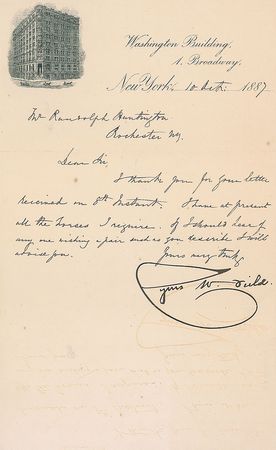 Washington Building,
1, Broadway,
New York, 10 Oct. 1887
Mr Randolph Huntington
Rochester NY.
Dear Sir,
I thank you for your letter
received on 8th Instant. I have at present
all the horses I require. If I should hear of
any one wishing a pair such as you describe I will
advise you.
Yours very truly
Cyrus W. Field.